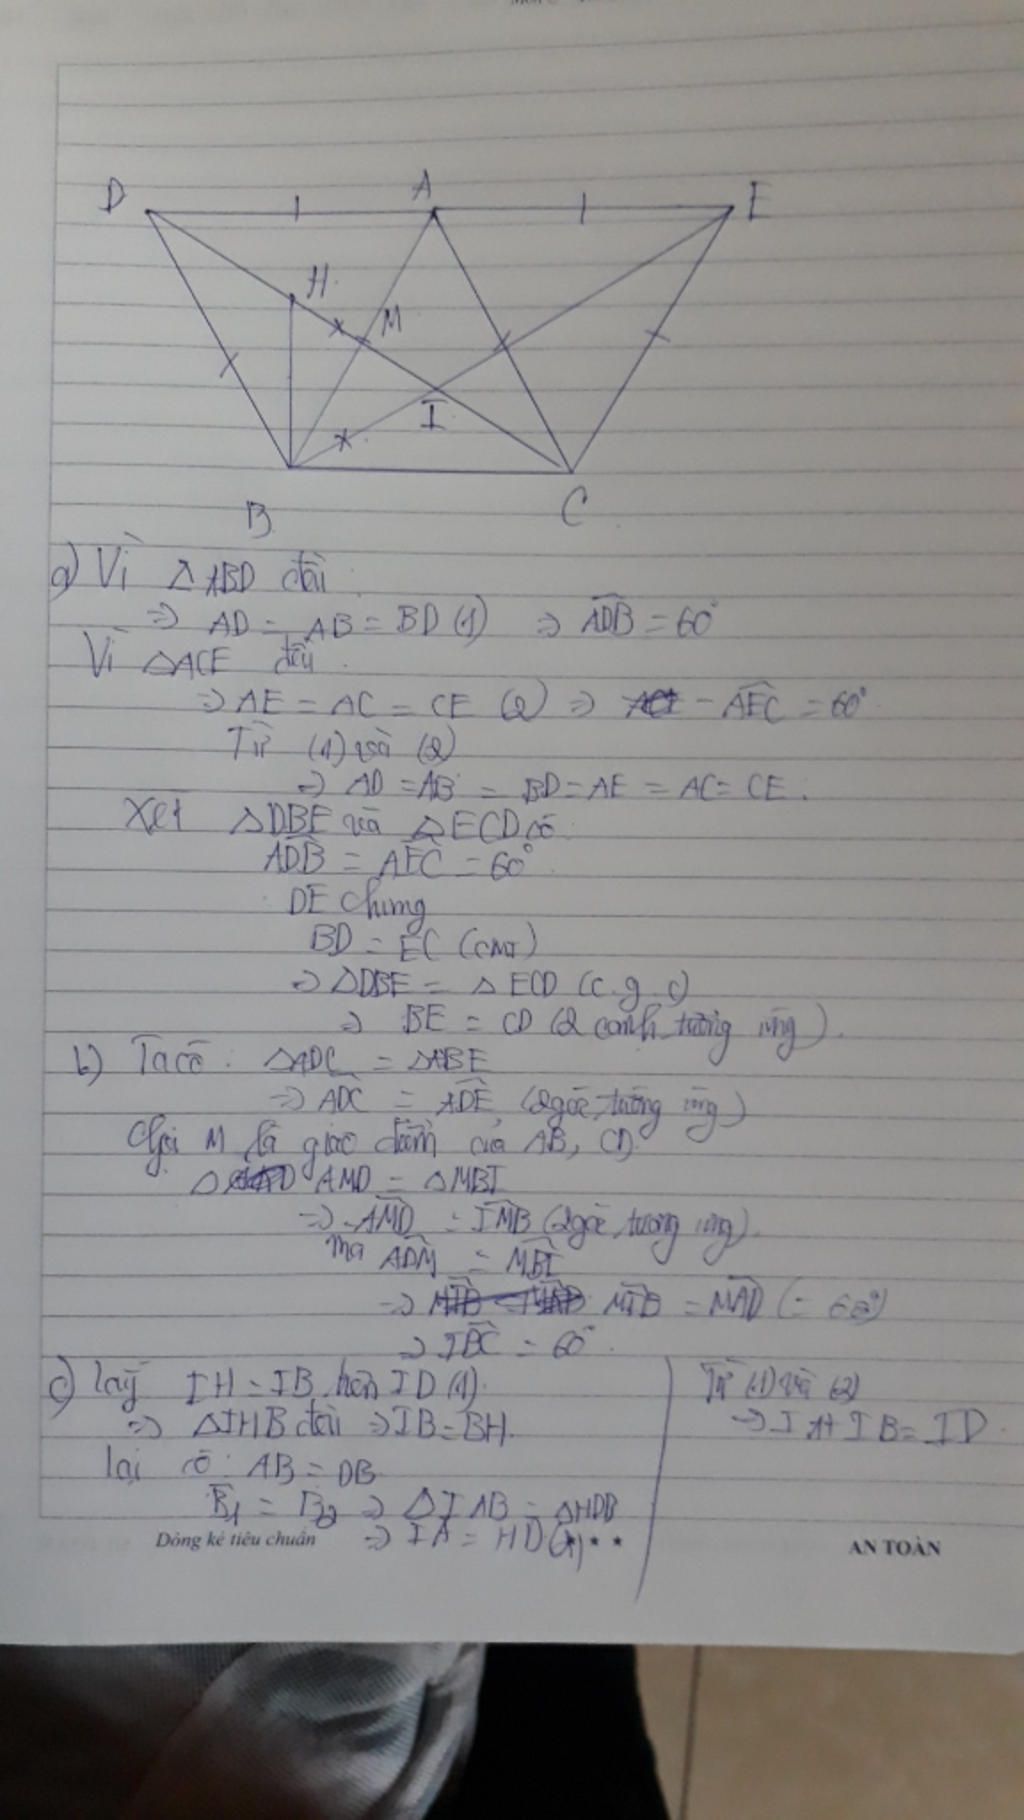 D
A
E
H
M
I
B
C
a) Vì △ABD đều
⇒ AD = AB = BD (1) ⇒ ADB = 60°
Vì △ACE đều
⇒ AE = AC = CE (2) ⇒ AEC = 60°
Từ (1) và (2)
⇒ AD = AB = BD = AE = AC = CE.
Xét △DBE và △ECD có
ADB = AEC = 60°
DE chung
BD = EC (CMT)
⇒ △DBE = △ECD (c.g.c)
⇒ BE = CD (2 cạnh tương ứng).
b) Ta có: △ADC = △ABE
⇒ ADC = ADE (2 góc tương ứng)
Gọi M là giao điểm của AB, CD
△ AMD = △MBI
⇒ AMD = IMB (2 góc tương ứng).
mà ADM = MBI
⇒ MIB = MAD (= 60°)
⇒ IBC = 60°.
c) lấy IH = IB trên ID (1).
⇒ △IHB đều ⇒ IB = BH.
lại có: AB = DB
B1 = B2 ⇒ △IAB = △HDB
⇒ IA = HD
Từ (1) và (2)
⇒ IA + IB = ID
Dòng kẻ tiêu chuẩn
AN TOÀN